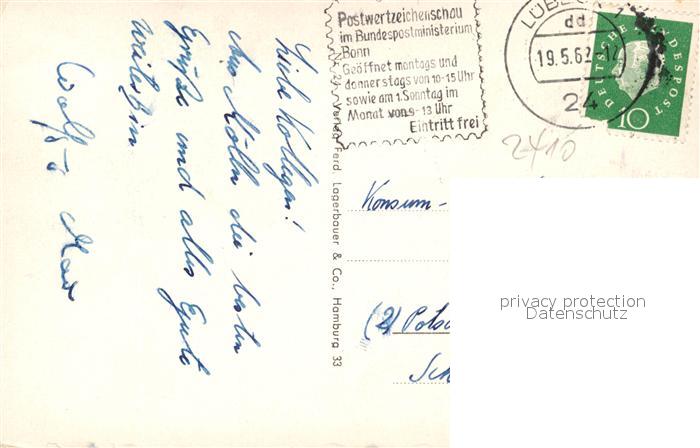 Liebe Kollegen!
Aus Mölln die besten
Grüße und alles Gute
weiterhin
Wolfg.
Postwertzeichenschau
im Bundespostministerium
Bonn
Geöffnet montags und
donnerstags von 10-15 Uhr
sowie am 1. Sonntag im
Monat von 9-13 Uhr
Eintritt frei
LÜBECK
dd
19.5.62
24
DEUTSCHE BUNDESPOST
10
2410
Verlag Ferd. Lagerbauer & Co., Hamburg 33
Konsum-
(2) Potsd
Sch
privacy protection
Datenschutz